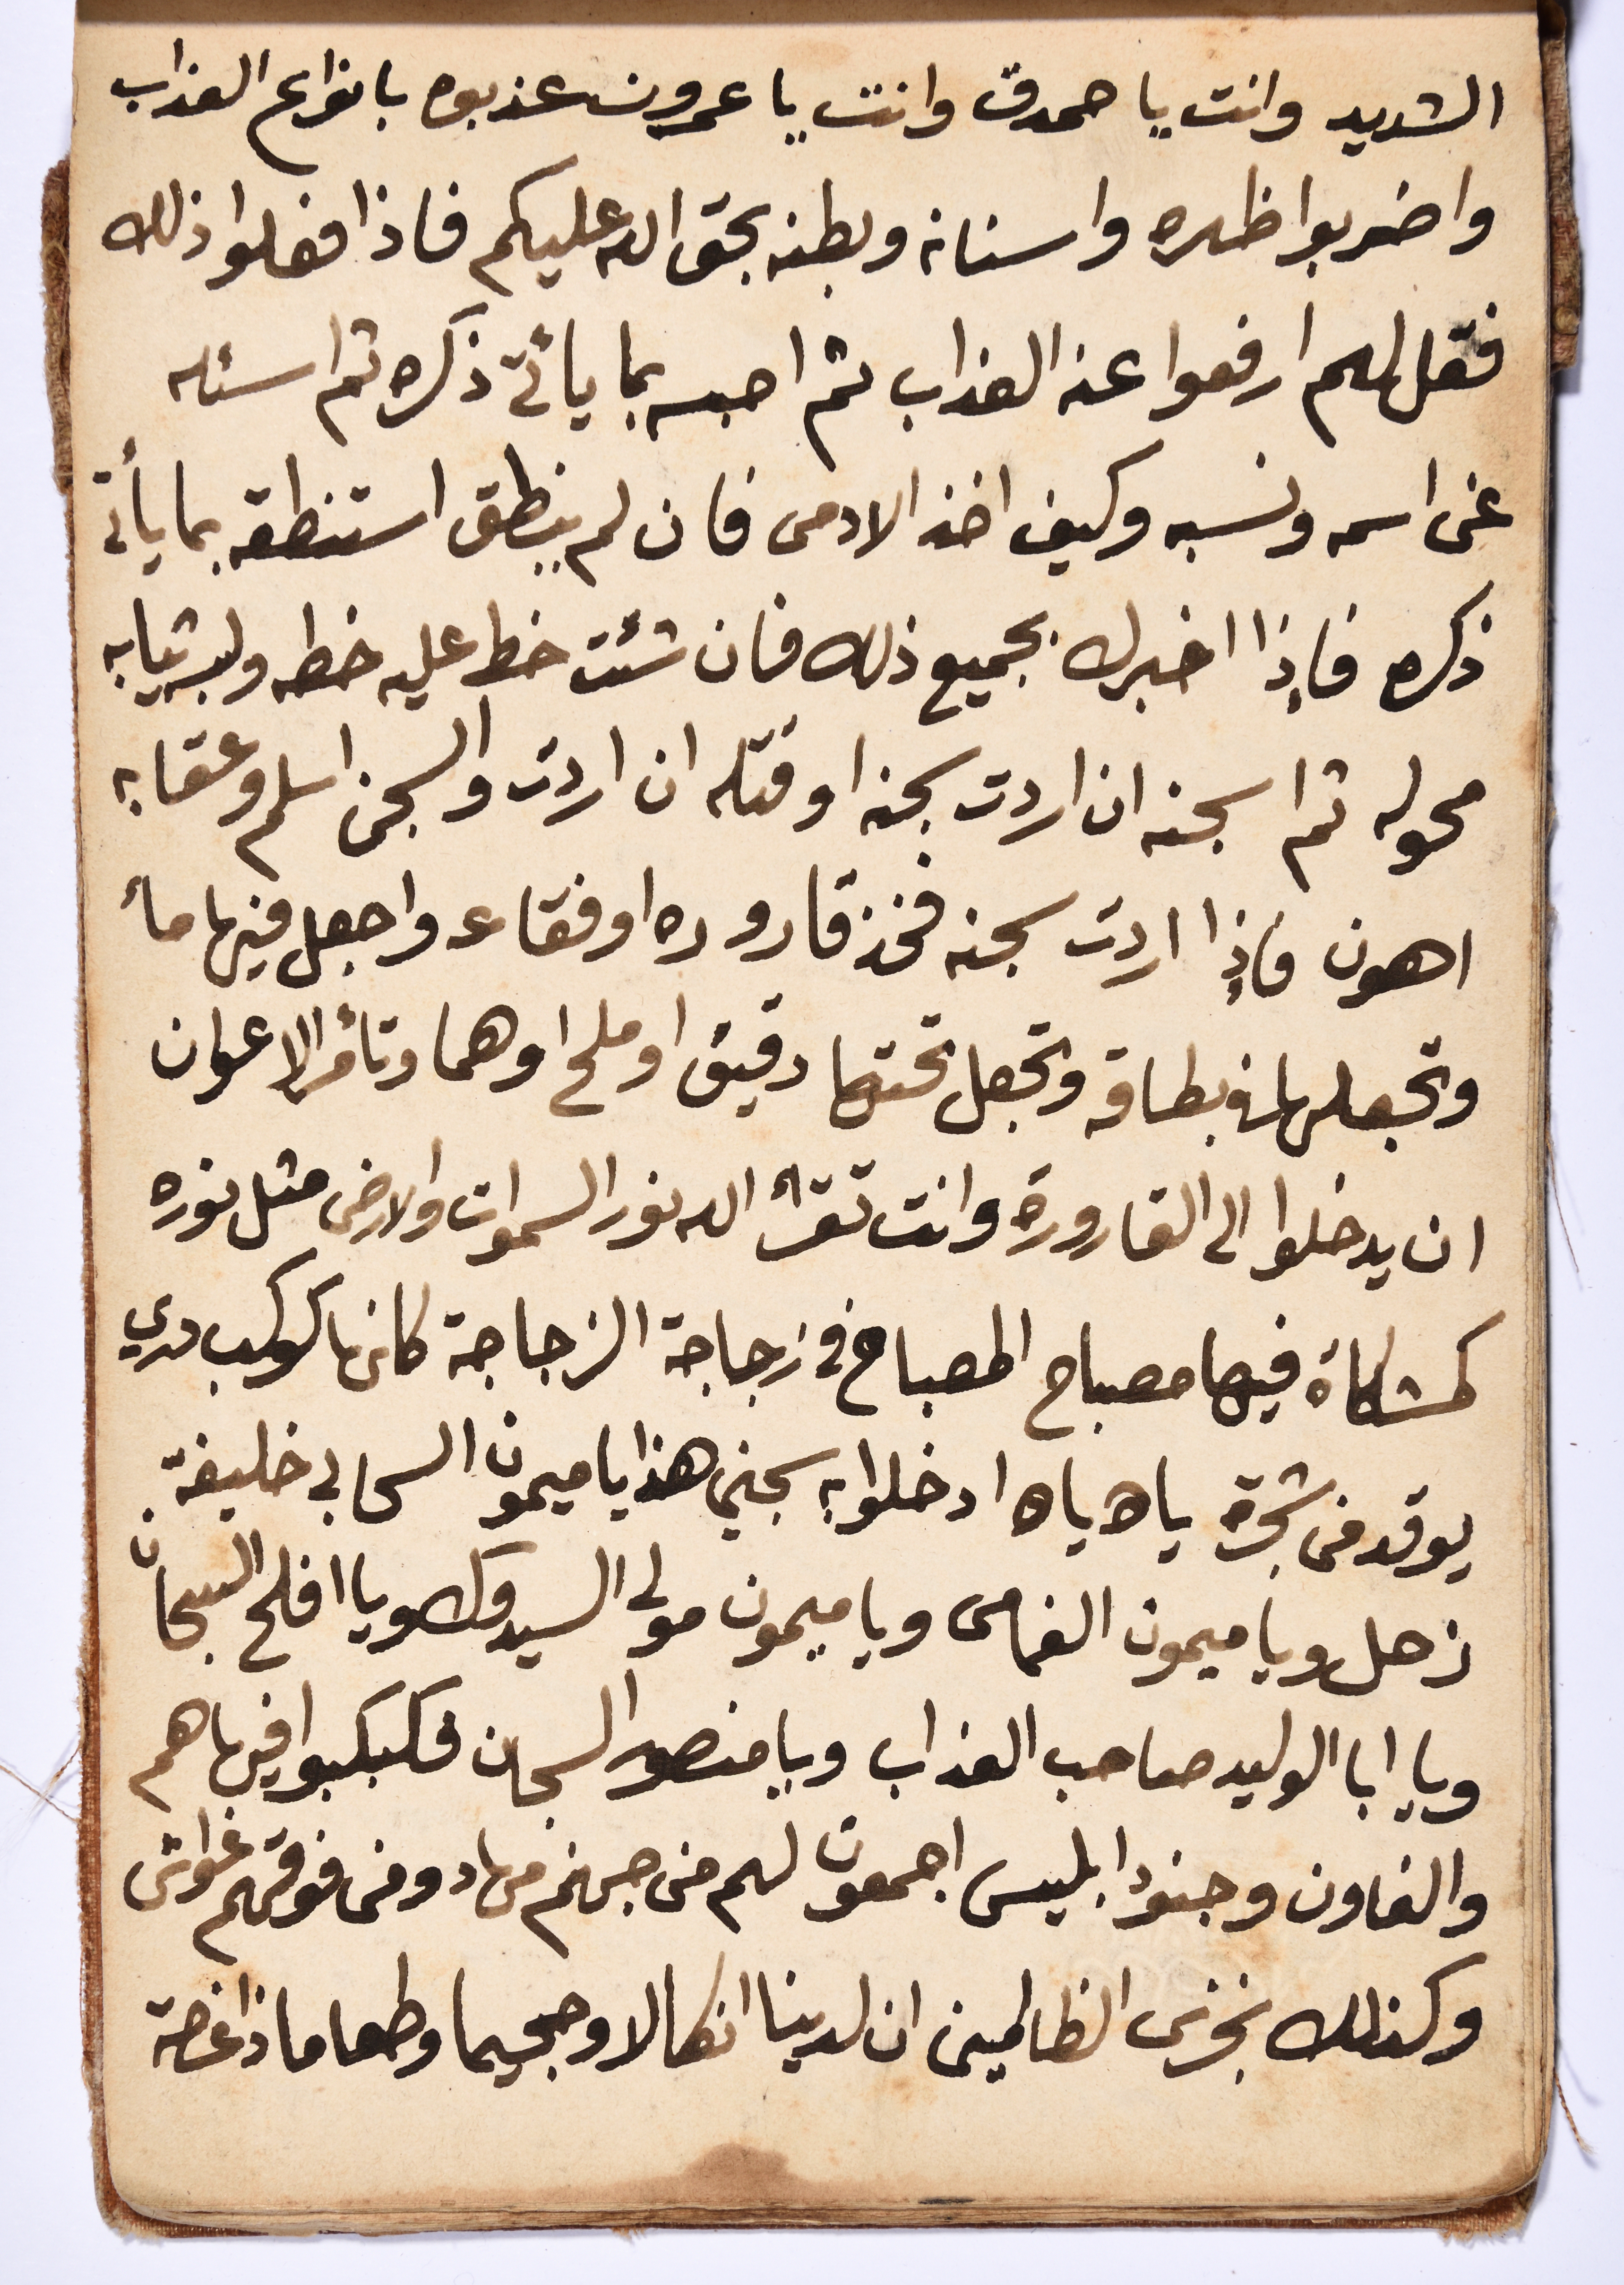 الشديد وانت يا حمدق وانت يا عمرون عذبوه بانواع العذاب
واضربوا ظهره واسنانه وبطنه بحق الله عليكم فاذا فعلوا ذلك
فقل لهم ارفعوا عنه العذاب ثم احبسه بما يأتي ذكره ثم اسئله
عن اسمه ونسبه وكيف اخذ الادمى فان لم ينطق استنطقه بما يأتي
ذكره فإذا اخبرك بجميع ذلك فان شئت خط عليه خطه ولبه ثيابه
محوله ثم اسجنه ان اردت سجنه او قتله ان اردت والسجن اسلم وعقابه
اهون فإذا اردت سجنه فخذ قاروره او فقاعه واجعل فيها مأ
وتجعلها في بطاقه وتجعل تحتها دقيق او ملح او هما وتأمر الاعوان
ان يدخلوا الى القارورة وانت تقرأ الله نور السموات والارض مثل نوره
كمشكاة فيها مصباح المصباح في زجاجة الزجاجة كانها كوكب دري
يوقد من شجرة ياه ياه ادخلوا به سجني هذا يا ميمون السحابي خليفة
زحل ويا ميمون الغمامى ويا ميمون مولى السيدوك ويا افلح السجان
ويا ابا الوليد صاحب العذاب ويا منصور السجان فكبكبوا فيها هم
والغاون وجنود ابليس اجمعون لهم من جهنم مهاد ومن فوقهم غواش
وكذلك نجزى الظالمين ان لدينا انكالا وجحيما وطعاما ذا غصة